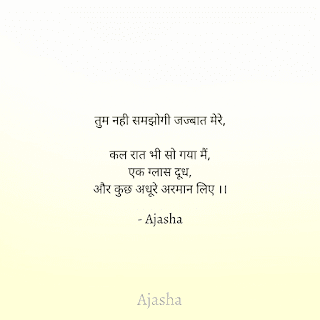 तुम नही समझोगी जज्बात मेरे,
कल रात भी सो गया मैं,
एक ग्लास दूध,
और कुछ अधूरे अरमान लिए ।।
- Ajasha
Ajasha